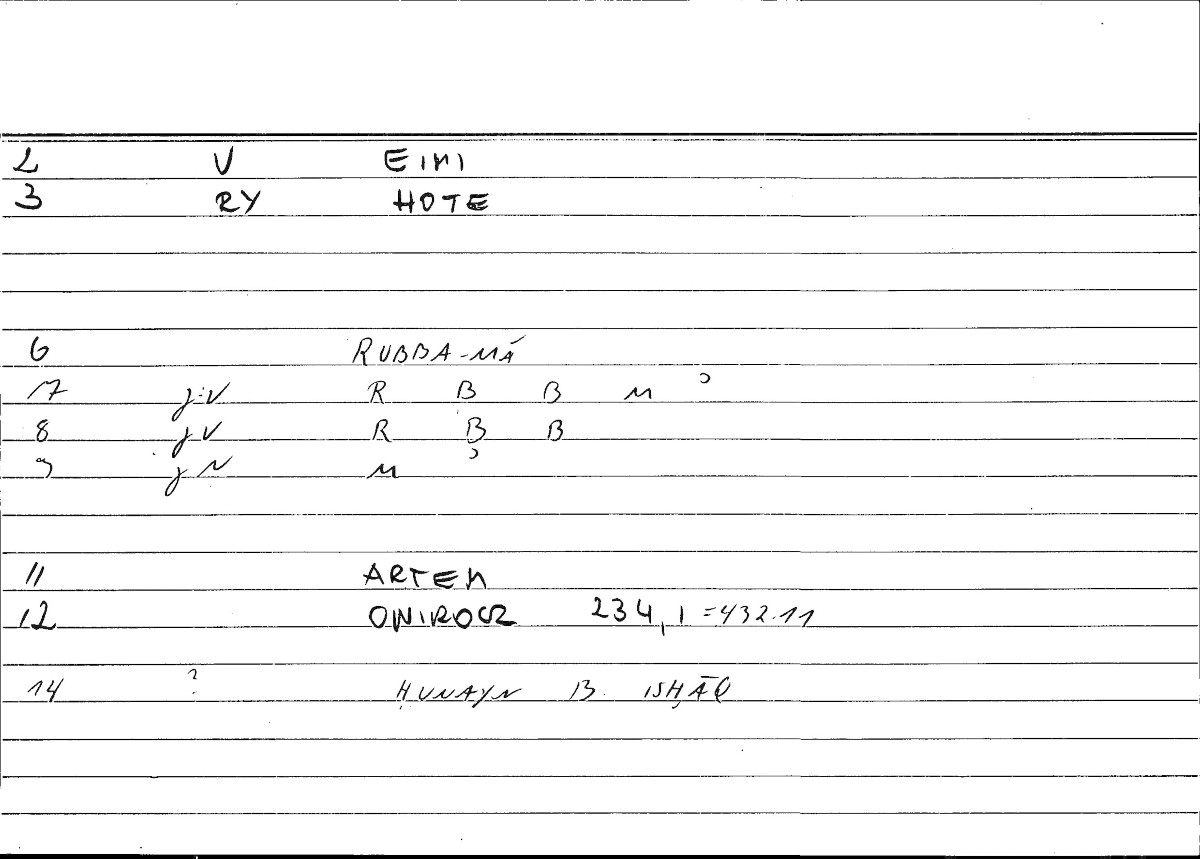 2 V EIMI
3 RY HOTE
6 RUBBA-MĀ
7 j:V R B B M ʾ
8 jV R B B
9 jN M ʾ
11 ARTEM
12 ONIROCR 234,1 =432.11
14 ? ḤUNAYN B. ISḤĀQ